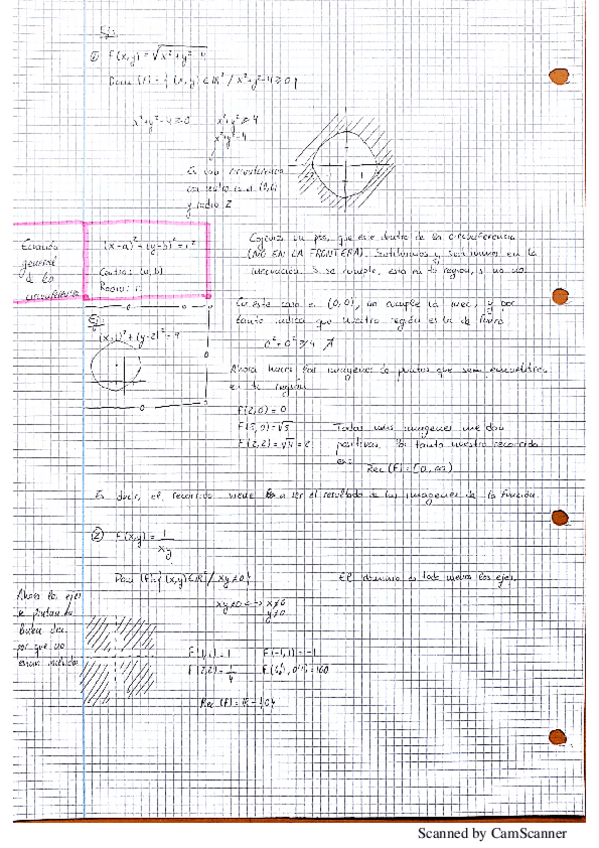 Ej:
① F(x,y) = √x²+y²-4
Dom (f) = { (x,y) ∈ ℝ² / x²+y²-4 ≥ 0 }
x²+y²-4 ≥ 0 x²+y² ≥ 4
x²+y² = 4
Es una circunferencia
con centro en el (0,0)
y radio 2
Ecuación
general
de la
circunferencia
(x-a)² + (y-b)² = r²
Centro: (a,b)
Radio: r
Ej:
(x-1)² + (y-2)² = 9
Cojemos un pto, que esté dentro de la circunferencia
(NO EN LA FRONTERA). Sustituimos y en la
inecuación. Si se cumple, está en la región, si no no.
En este caso el (0,0), no cumple la inec, y por
tanto indica que nuestra región es la de fuera
0² + 0² ≥ 4
Ahora hacer las imágenes de puntos que sean
de región
F(2,0) = 0
F(3,0) = √5
F(2,2) = √4 = 2
Todas las imágenes me dan
positivas. Por tanto nuestro recorrido
es:
Rec (F) = [0, ∞)
Es decir, el recorrido viene a ser el resultado de las imagenes de la función.
② F(x,y) = 1
xy
Dom (F) = { (x,y) ∈ ℝ² / xy ≠ 0 }
El dominio es todo menos los ejes.
xy ≠ 0 <-> x ≠ 0
y ≠ 0
Ahora los ejes
se pintan
por que no
están
F(1,1) = 1 F(-1,1) = -1
F(2,2) = 1 F(0'1, 0'1) = 100
4
Rec (F) = ℝ - {0}
Scanned by CamScanner